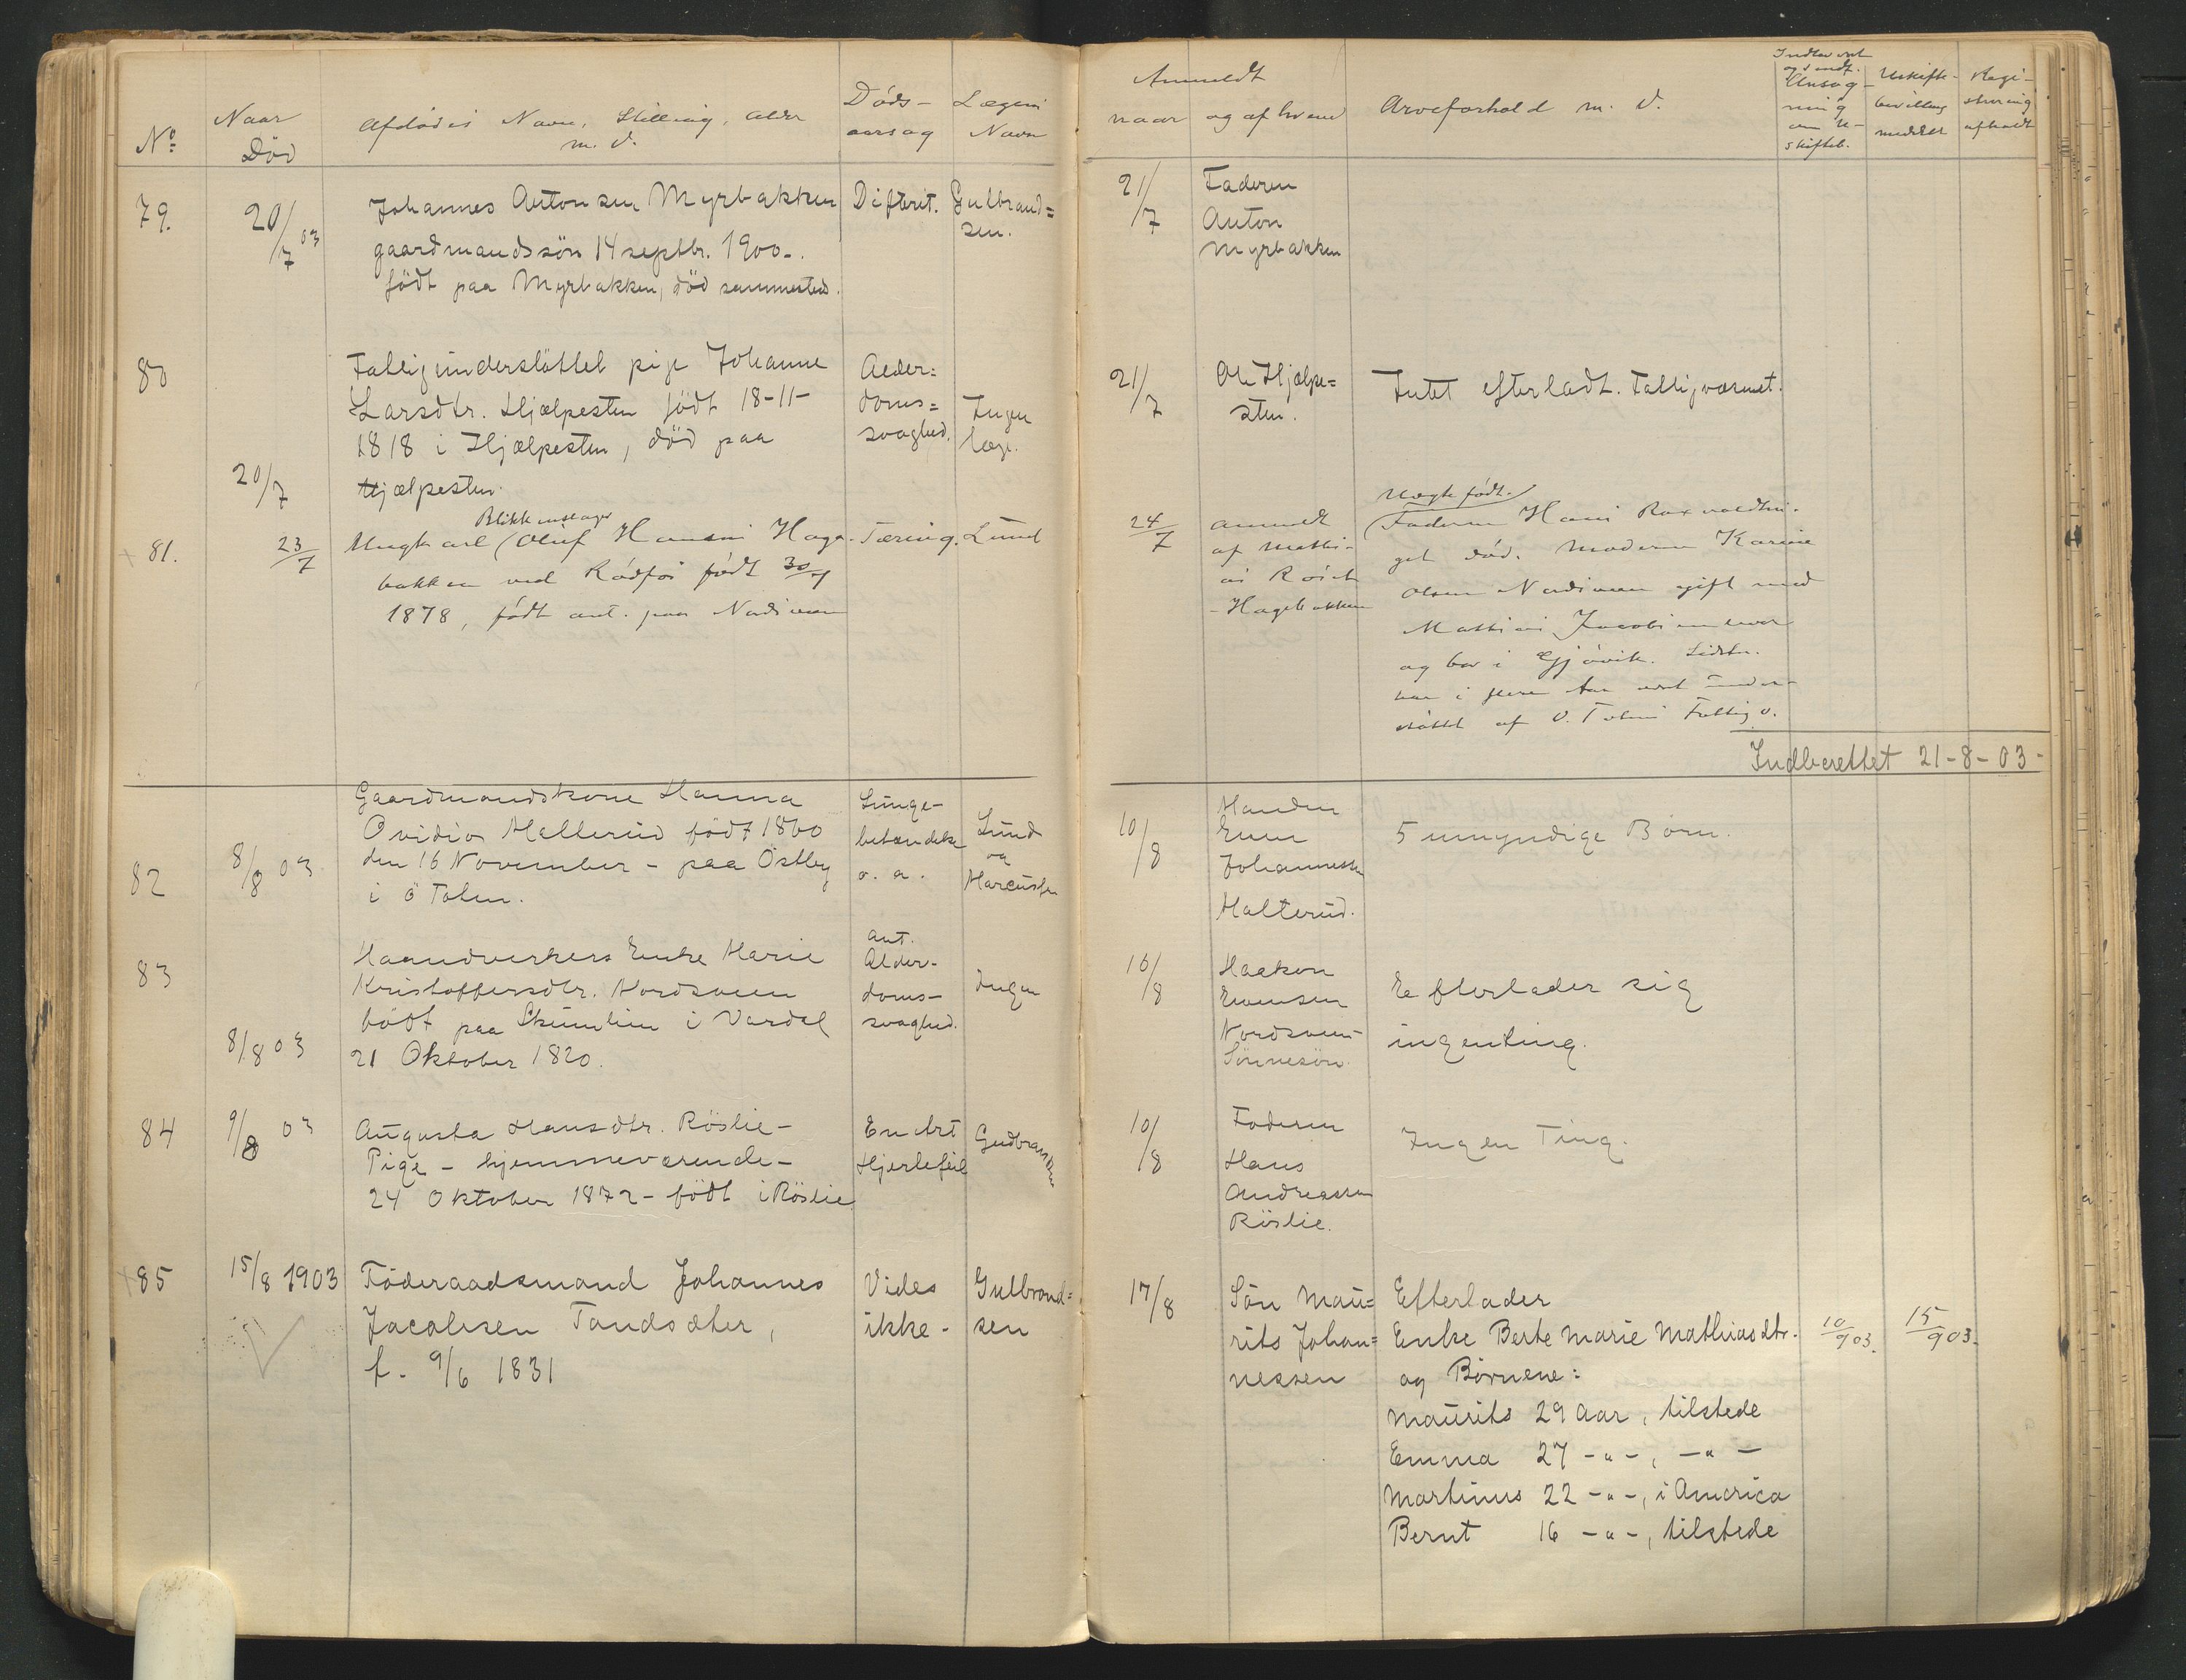 No
Naar
Död
Afdødes Navn, Stilling, Alder
m. v.
Döds-
aarsag
Lægens
Navn
Anmeldt
naar
og af hvem
Arveforhold m. v.
Indleveret
og sendt
Ansög-
ning
om u-
skifteb.
Uskifte-
bevilling
meddelt
Regi-
strering
afholdt
79.
20/7 03
Johannes Antonsen Myrbakken
gaardmandssön 14 septbr. 1900.
födt paa Myrbakken, död sammesteds.
Difterit.
Gulbrand=
sen.
21/7
Faderen
Anton
Myrbakken
80
20/7
Fattigunderstöttet pige Johanne
Larsdtr. Hjælpesten födt 18-11-
1818 i Hjælpesten, död paa
Hjælpesten.
Alder=
doms=
svaghed.
Ingen
læge.
21/7
Ole Hjælpe=
sten.
Intet efterladt. Fattigvæsenet.
81.
23/7
Blikkenslager
Ungkarl Oluf Hansen Hage-
bakken ved Rödfos födt 30/
1878, födt ant. paa Nordsveen
Tæring.
Lund
24/7
anmeldt
af Mathi-
as Röise
-Hagebakken
Uægte födt.
Faderen Hans
död. Moderen Karine
Olsen Nordsveen gift med
Mathias Jacobsen
og bor i Gjövik. Sidstn.
har i flere Aar været under-
støttet af V. Totens Fattigv.
Indberettet 21-8-03-
82
8/8 03
Gaardmandskone Hanna
Ovidia Hallerud födt 1860
den 16 November - paa Östby
i ö Toten.
Lunge-
betændelse
o. a.
Lund
og
Marcussen
10/8
Manden
Even
Johannessen
Halterud.
5 umyndige Börn.
83
8/8 03
Haandverkers Enke Marie
Kristoffersdtr. Nordsveen
födt paa Skumlien i Vardal
21 Oktober 1820.
ant.
Alder-
doms-
svaghed.
Ingen
10/8
Haakon
Evensen
Nordsveen-
Sönnesön.
Efterlader sig
ingenting.
84
9/8 03
Augusta Hansdtr. Röslie-
Pige - hjemmeværende-
24 Oktober 1872 - födt i Röslie
En Art
Hjertefeil
Gudbrandsen
10/8
Faderen
Hans
Andreassen
Röslie.
Ingen Ting.
85
15/8 1903
Föderaadsmand Johannes
Jacobsen Tandsæter,
f. 9/6 1831
Vides
ikke -
Gulbrand=
sen
17/8
Sön Mau=
rits Johan=
nessen
Efterlader
Enke Berte Marie Mathiasdtr.
og Børnene:
Maurits 29 Aar, tilstede
Emma 27 -"-, -"-
Martinus 22 -"-, i America
Bernt 16 -"-, tilstede
10/9 03.
15/9 03.